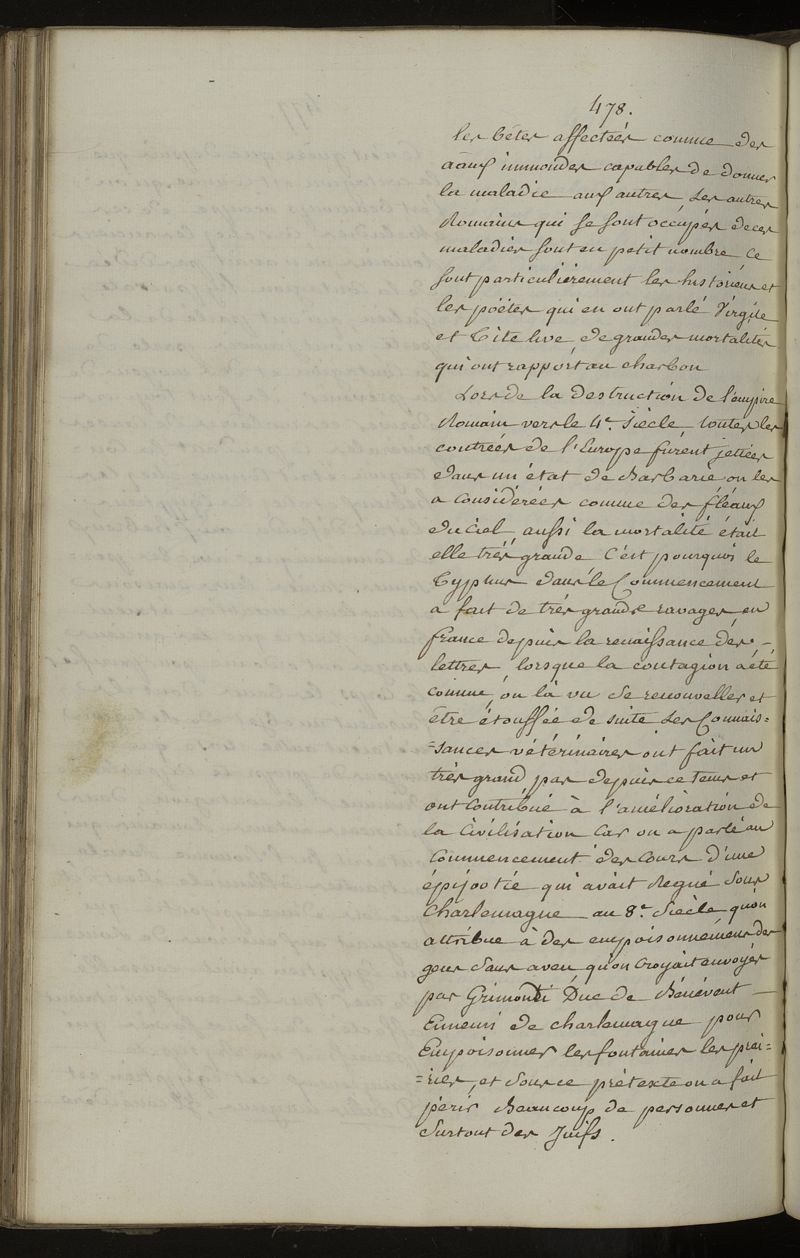 478.
les bêtes affectées comme des
aaux immondes capables de donner
la maladie aux autres, Les autres
Romains qui se sont occupés de ces
maladies sont en petit nombre, Ce
sont particulièrement les historiens et
les poëtes qui en ont parlé Virgile
et Tite live, de grandes mortalités
qui ont rapport au charbon
Lors de la destruction de l'empire
Romain vers le 4.e Siècle, toutes les
contreés de l'Europe furent jettées
dans un état de Barbarie on les
a Considérées comme des fléaux
du Ciel, aussi la mortalité était
elle très grande C'est pourquoi le
Typhus dans le Commencement
a fait de très grands ravages en
france depuis la renaissance des -
lettres, lorsque la contagion a été
connue, on l'à vu se renouveller et
être étouffée de suite Les Connais=
=sances vétérinaires ont fait un
très grand pas depuis ce tems et
ont Contribué à l'amélioration de
la Civilisation Car on a parlé au
Commencement des Cours d'une
épizootie qui avait Regné Sous
Charlemagne au 8.e Siècle qu'on
attribue à des empoisonnemens des
gens Sans aveu qu'on Croyait envoyés
par Grimoldi Duc de Bénévent -
Ennemi de charlemagne pour
Empoisonner les fontaines les prai=
=ries, et Sous ce prétexte on a fait
périr Beaucoup de personnes et
Surtout des Juifs.